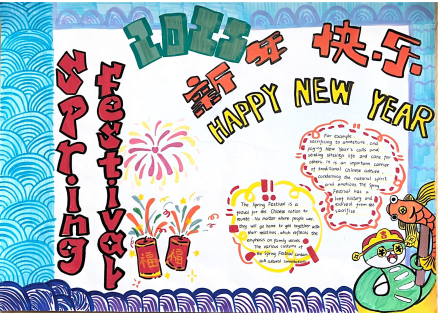 2025
新年快乐
HAPPY NEW YEAR
Spring
festival
For example,
sacrificing to ancestors, and
paying New Year's calls and
others. It is an important carrier
of traditional Chinese culture,
condensing the national spirit
and emotions. The Spring
Festival has a
long history and
evolved from the
sacrifice
The Spring Festival is a
period for the Chinese nation to
reunite. No matter where people are,
they will go home to get together with
their relatives, which reflects the
emphasis on family bonds.
The various customs of
the Spring Festival contain
rich cultural connotations.
福
福